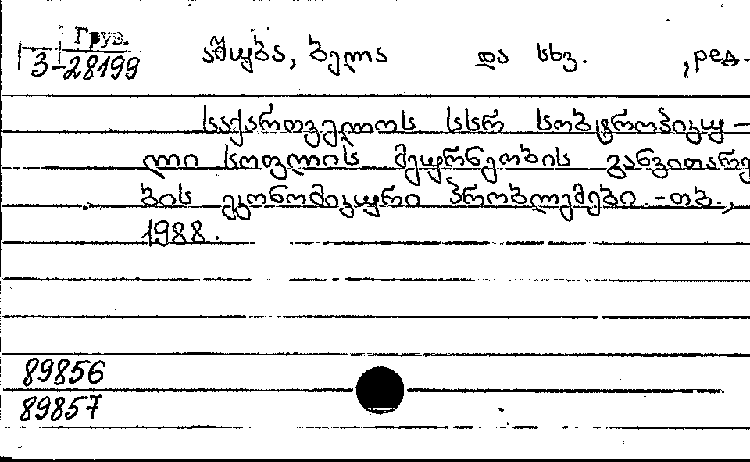 Груз.
3-28199
აშუბა, ბელა და სხვ. , ред.
საქართველოს სსრ სუბტროპიკუ-
ლი სოფლის მეურნეობის განვითარე
ბის ეკონომიკური პრობლემები. - თბ.,
1988.
89856
89857